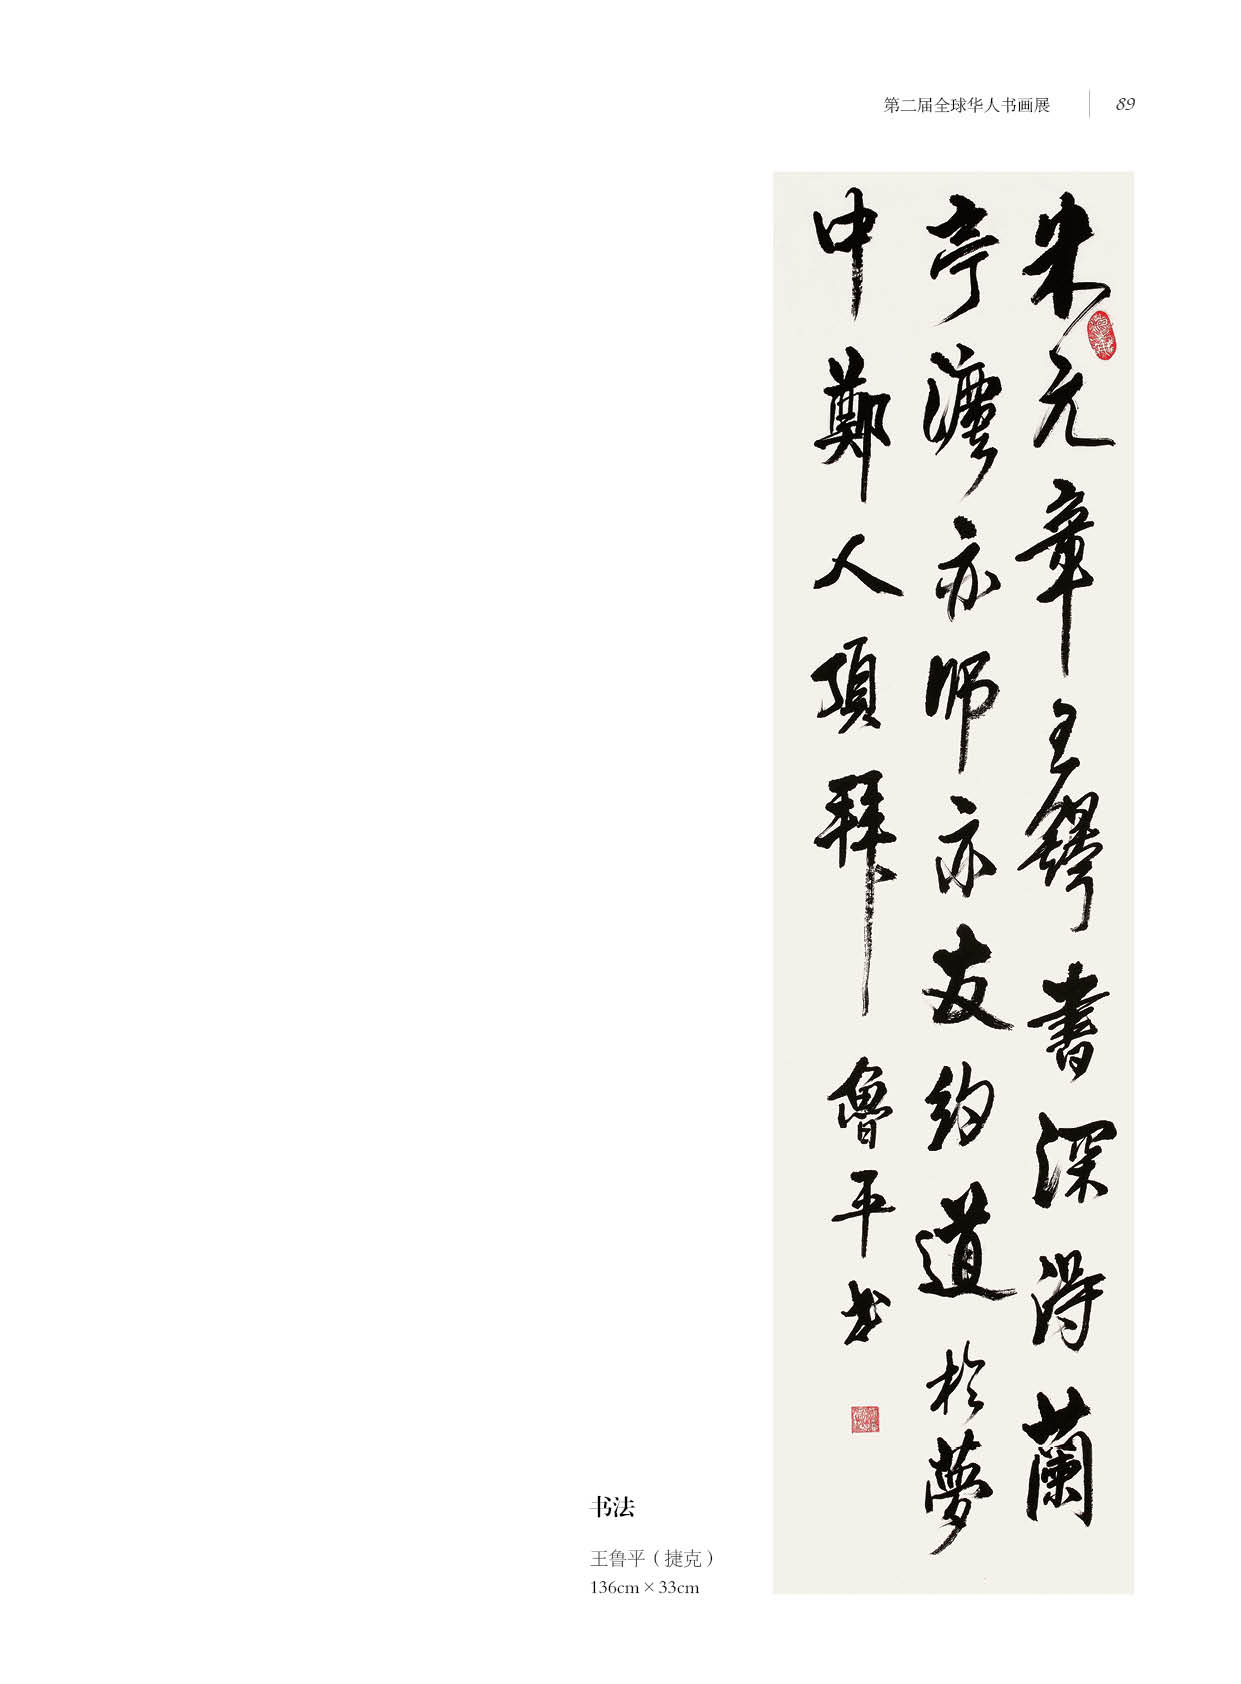 第二届全球华人书画展 89
米元章王鐸書深得蘭
亭灋亦师亦友約道於夢
中鄭人頂拜 魯平书
书法
王鲁平（捷克）
136cm×33cm